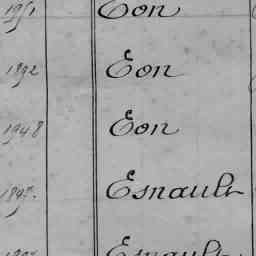 1951 Eon
1892 Eon
1948 Eon
1897. Esnault
Esnault